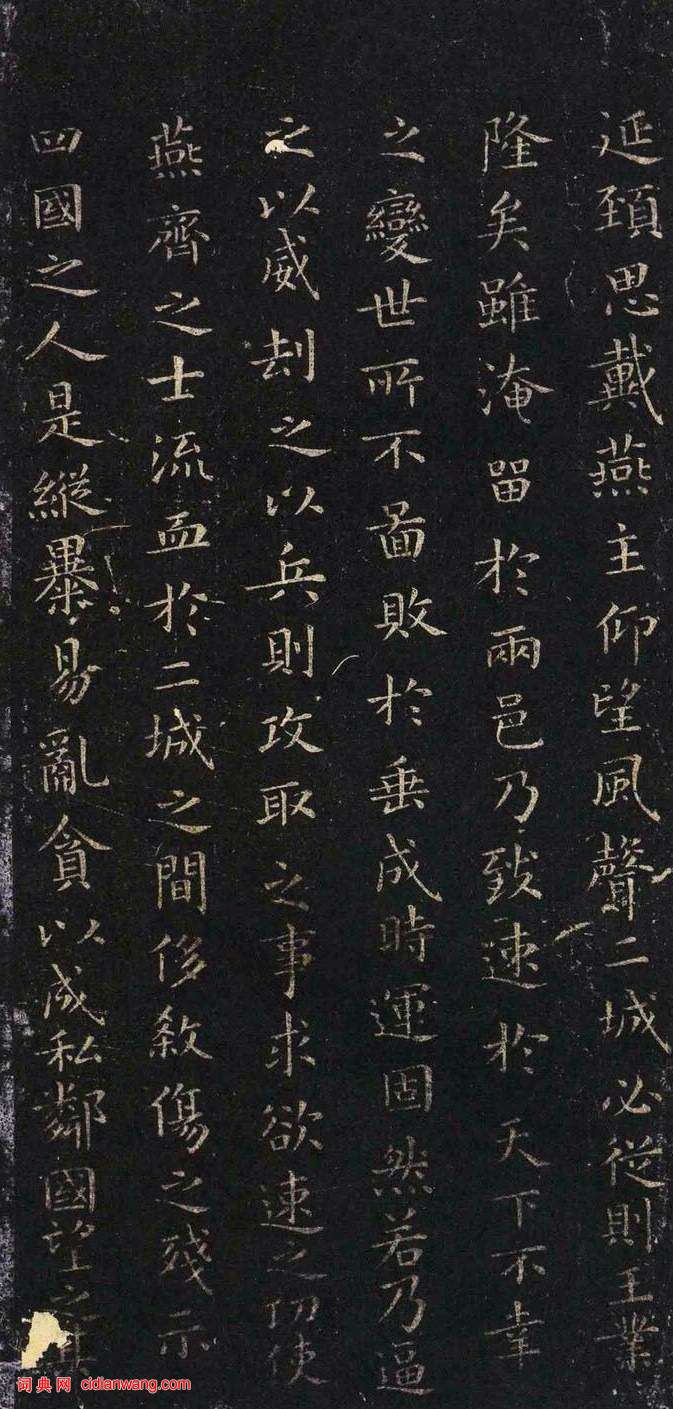 延頸思戴燕主仰望風聲二城必從則王業
隆矣雖淹留於兩邑乃致速於天下不幸
之變世所不啚敗於垂成時運固然若乃逼
之以威刦之以兵則攻取之事求欲速之功使
燕齊之士流血於二城之間侈煞傷之殘示
四國之人是縱暴易亂貪以成私鄰國望之其
词典网 cidianwang.com